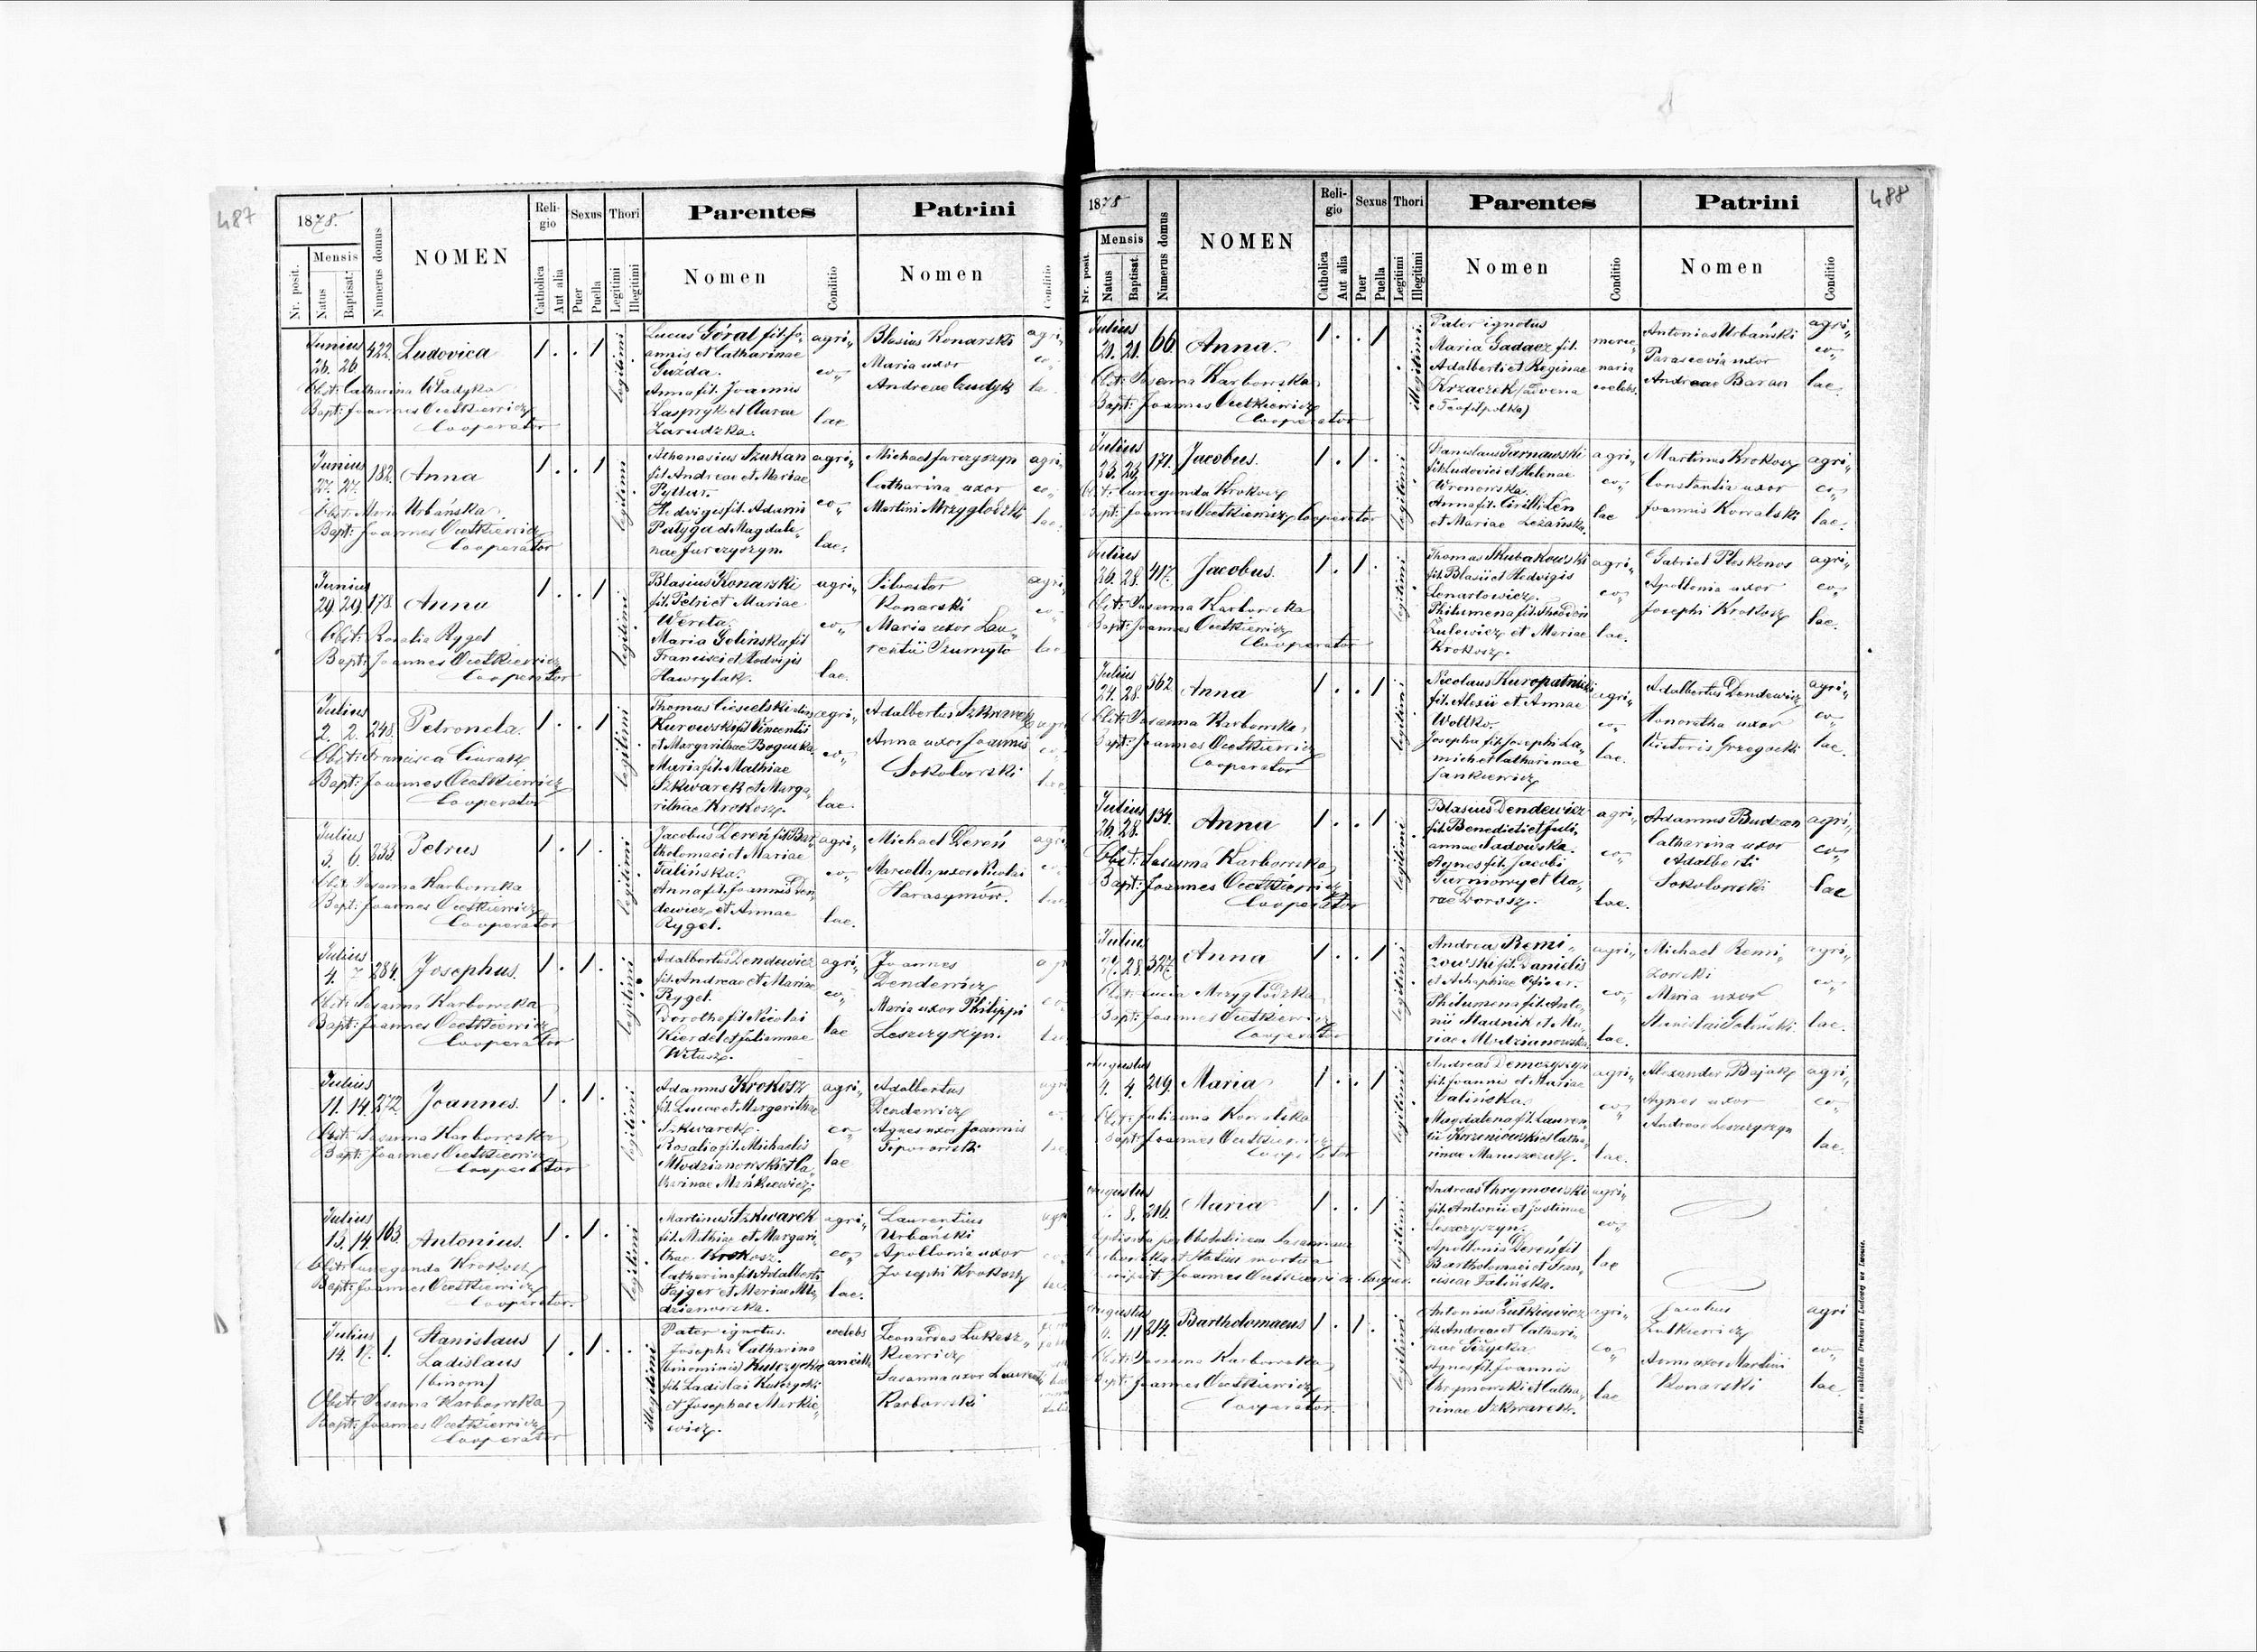 487
1878.
Nr. posit.
Mensis
Natus
Baptisat.
Numerus domus
NOMEN
Religio
Catholica
Aut alia
Sexus
Puer
Puella
Thori
Legitimi
Illegitimi
Parentes
Nomen
Conditio
Patrini
Nomen
Conditio
Junius
26. 26. 422. Ludovica
Obst: Catharina Władyka
Bapt: Joannes Ocetkiewicz
Cooperator
legitimi
Lucas Góral fil. Jo-
annis et Catharinae
Guzda.
Anna fil. Joannis
Kaspryk et Annae
Zarudzka.
agri-
co-
lae
Blasius Konarski
Maria uxor
Andreae Gudyk
Junius
27. 27. 182. Anna
Obst: Maria Urbańska.
Bapt: Joannes Ocetkiewicz
Cooperator
legitimi
Athanasius Szukan
fil. Andreae et Mariae
Hedvigis fil. Adami
Patyga et Magdale-
nae Jurczyszyn.
agri-
co-
lae.
Michael Jurczyszyn
Catharina uxor
Martini Mrzygłódzki
Junius
29. 29. 178. Anna
Obst: Rosalia Rygel
Bapt: Joannes Ocetkiewicz
Cooperator
legitimi
Blasius Konarski
fil. Petri et Mariae
Maria Golińska fil
Francisci et Hedvigis
Hawrylak.
agri-
co-
lae.
Silvester
Konarski
Maria uxor Lau-
rentii Szumyło
Julius
2. 2. 248. Petronela.
Obst: Francisca
Bapt: Joannes Ocetkiewicz
Cooperator
legitimi
Thomas Ciesielski
Kurowski fil. Vincentii
et Margarithae Bogucka
Maria fil. Mathiae
Szkwarek et Marga-
rithae Krokosz.
agri-
co-
lae.
Adalbertus Szkwarek
Anna uxor Joannis
Sokolowski
Julius
5. 6. 233. Petrus
Obst: Susanna Karbowska
Bapt: Joannes Ocetkiewicz
Cooperator
legitimi
Jacobus Dereń fil. Bar-
tholomaei et Mariae
Talińska.
Anna fil. Joannis Den-
dewicz et Annae
Rygel.
agri-
co-
lae.
Michael Dereń
Marcella uxor Nicolai
Harasymów.
Julius
4. 7. 284. Josephus.
Obst: Susanna Karbowska
Bapt: Joannes Ocetkiewicz
Cooperator
legitimi
Adalbertus Dendewicz
fil. Andreae et Mariae
Rygel.
Dorothea fil. Nicolai
Kierdel et Juliannae
Witusz.
agri-
co-
lae
Joannes
Dendewicz
Maria uxor Philippi
Leszczyszyn.
Julius
11. 14. 272 Joannes.
Obst: Susanna Karbowska
Bapt: Joannes Ocetkiewicz
Cooperator
legitimi
Adamus Krokosz
fil. Lucae et Margarithae
Szkwarek.
Rosalia fil. Michaelis
Młodzianowski et Ca-
tharinae Mańkiewicz.
agri-
co-
lae
Adalbertus
Dendewicz
Agnes uxor Joannis
Toporowski
Julius
13. 14. 163. Antonius.
Obst: Cunegunda Krokosz
Bapt: Joannes Ocetkiewicz
Cooperator.
legitimi
Martinus Szkwarek
fil. Mathiae et Margari-
thae Krokosz.
Catharina fil. Adalberti
Fajger et Mariae Mło-
dzianowska.
agri-
co-
lae.
Laurentius
Urbański
Apollonia uxor
Josephi Krokosz
Julius
14. 17. 1. Stanislaus
Ladislaus
(binom)
Obst: Susanna Karbowska
Bapt: Joannes Ocetkiewicz
Cooperator
illegitimi
Pater ignotus.
Josepha Catharina
(binominis) Kulczycka
fil. Ladislai Kulczycki
et Josephae Markie-
wicz.
coelebs
ancilla
Leonardus Lukasz-
kiewicz
Susanna uxor Laurentii
Karbowski
488
1878
Nr. posit.
Mensis
Natus
Baptisat.
Numerus domus
NOMEN
Religio
Catholica
Aut alia
Sexus
Puer
Puella
Thori
Legitimi
Illegitimi
Parentes
Nomen
Conditio
Patrini
Nomen
Conditio
Julius
21. 21. 66. Anna.
Obst: Susanna Karbowska
Bapt: Joannes Ocetkiewicz
Cooperator
illegitimi
Pater ignotus
Maria Gadacz fil.
Adalberti et Reginae
Krzaczek (advena
e Teofilpolka)
merce-
naria
coelebs.
Antonius Urbański
Parascevia uxor
Andreae Baran
agri-
co-
lae.
Julius
23. 23. 171. Jacobus.
Obst: Cunegunda Krokosz
Bapt: Joannes Ocetkiewicz Cooperator
legitimi
Stanislaus Tarnawski
fil. Ludovici et Helenae
Wronowska.
Anna fil. Cirilli Leń
et Mariae Leżańska.
agri-
co-
lae
Martinus Krokosz
Constantia uxor
Joannis Kowalski
agri-
co-
lae.
Julius
26. 28. 417. Jacobus.
Obst: Susanna Karbowska
Bapt: Joannes Ocetkiewicz
Cooperator
legitimi
Thomas Skubakowski
fil. Blasii et Hedvigis
Lenartowicz.
Philumena fil. Theodori
Żulewicz et Mariae
Krokosz.
agri-
co-
lae.
Gabriel Płoskonos
Apollonia uxor
Josephi Krokosz
agri-
co-
lae.
Julius
24. 28. 562 Anna
Obst: Susanna Karbowska
Bapt: Joannes Ocetkiewicz
Cooperator
legitimi
Nicolaus Kuropatnicki
fil. Alexii et Annae
Wołtko.
Josepha fil. Josephi La-
mich et Catharinae
Jankiewicz
agri-
co-
lae.
Adalbertus Dendewicz
Honoratha uxor
Victoris Grzegocki
agri-
co-
lae.
Julius
26. 28. 134. Anna
Obst: Susanna Karbowska
Bapt: Joannes Ocetkiewicz
Cooperator
legitimi
Blasius Dendewicz
fil. Benedicti et Juli-
annae Sadowska.
Agnes fil. Jacobi
Turniowy et Cla-
rae Dorosz.
agri-
co-
lae.
Adamus Budzan
Catharina uxor
Adalberti
Sokolowski
agri-
co-
lae
Julius
28. 327. Anna
Obst: Lucia Mrzygłódzka
Bapt: Joannes Ocetkiewicz
Cooperator
legitimi
Andreas Remi-
zowski fil. Danielis
Philumena fil. Anto-
nii Madnik et Ma-
riae Młodzianowska.
agri-
co-
lae.
Michael Remi-
zowski
Maria uxor
Stanislai Goliński.
agri-
co-
lae.
Augustus
4. 4. 219. Maria
Obst: Julianna Kowalska
Bapt: Joannes Ocetkiewicz
Cooperator
legitimi
Andreas Demczyszyn
fil. Joannis et Mariae
Talińska.
Magdalena fil. Lauren-
tii Korzeniowski et Catha-
rinae Maruszczak.
agri-
co-
lae.
Alexander Bajak
Agnes uxor
Andreae Leszczyszyn
agri-
co-
lae.
Augustus
8. 216. Maria
Baptisata per Obstetricem Susannam
Karbowska et statim mortua
Joannes Ocetkiewicz Cooper.
legitimi
Andreas Chrymowski
fil. Antonii et Justinae
Leszczyszyn.
Apollonia Dereń fil
Bartholomaei et Fran-
ciscae Talińska.
agri-
co-
lae
Augustus
6. 11 214. Bartholomaeus
Obst: Susanna Karbowska
Bapt: Joannes Ocetkiewicz
Cooperator.
legitimi
Antonius Żutkiewicz
fil. Andreae et Cathari-
nae Giżycka.
Agnes fil. Joannis
Chrymowski et Catha-
rinae Szkwarek.
agri-
co-
lae
Jacobus
Żutkiewicz
Anna uxor Martini
Konarski
agri
co-
lae.